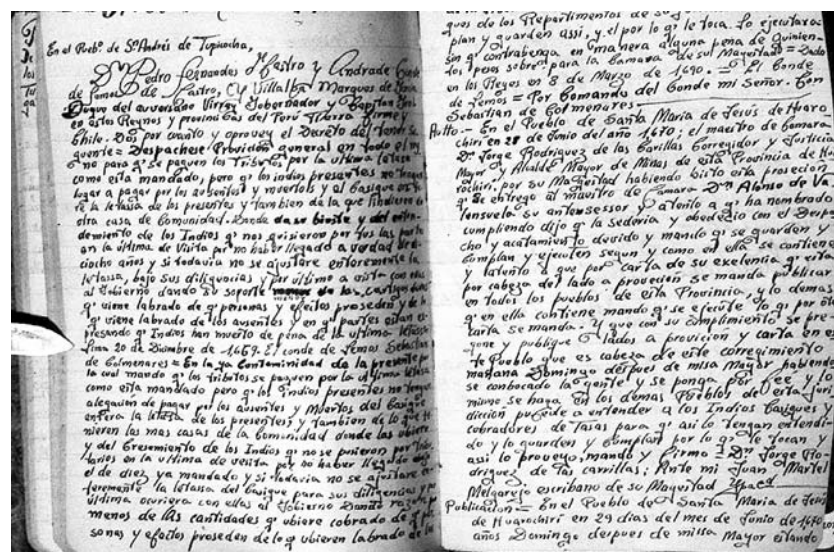 En el Puebº de Sn Andrés de Tupicocha,
Dn Pedro Fernandes de Castro y Andrade Conde
de Lemos de Castro, y Villalba Marques de Sarria
Duque del Virrey Gobernador y Capitan Genl
en estos Reynos y provincias del Perú Tierra firme y
Chile. Dos por cuanto y aprovey el Decreto del tenor se
quente = Despachese Provicion general en todo el
no para q. se paguen los Tributos por la ultima letassa
como esta mandado, pero q. los indios presentes no tengan
lugar a pagar por los ausentes y muertols y al Casique en
re la letassa de los presentes y tambien de la que
otra casa de Comunidad. Donde da su bisita y del
demiento de los Indios q. nos quisieron por tus las
an la última de Visita por no haber llegado a verdad de
ciocho años y si todavia no se ajustare enteremente la
letassa, bajo sus diliguocias y por último a vista con
al Gobierno dando su soporte menos de las
q. viene labrado de q. personas y efeitos proseden y de lo
q. viene labrado de los ausentes y en q. partes estan es
presando q. Indios han muerto de pena de la ultima letassa
Lima 20 de Diciembre de 1669. El conde de Lemos Sebastian
de Colmenares = En la ya Contaminidad de la presente por
la cual mando q. los tributos se paguen por la ultima letassa
como esta mandado pero q. los Indios presentes no tengan
alegacion de pagar por los ausentes y Muertos del Casique
entera la letassa de los presentes, y tambien de lo que te
nieren las mas casas de la Comunidad donde las ubiere
y del Cresemiento de los Indios q. no se pusieron por
tarios en la ultima de vesita por no haber llegado
el de diez ya mandado y si todavia no se ajustare
teremente la letassa del Casique para sus diligencias y
última ocuriera con ellas al Gobierno Dando razon
menos de las cantidades q. ubiere cobrado de q. per
sonas y efeitos proseden de lo q. ubieren labrado de los
ques de los Repartimientos de
plan y guarden assi, y el por lo q. le toca. Lo ejecutara
sin q. contrabenga en manera alguna pena de quinien-
dos pesos sobre para la Camara de sul Magestad = Dado
en los Reyes en 8 de Marzo de 1690. = El Conde
de Lemos = Por Comando del Conde mi Señor. Con
Sebastian de Cormenares.
Autto.- En el Pueblo de Santa Maria de Jesús de Huaro
chiri en 28 de Junio del año 1670; el maestro de Camara
Dn Jorge Rodriguez de las Carillas Corregidor y Justicia
Mayor y Alcalde Mayor de Minas de esta Provincia de Hua
rochiri, por su Magestad habiendo bisto esta prosecion
q. se entrego al maestro de Camara Dn Alonso de Va
lensuela su antesessor y atento a q. ha nombrado
cumpliendo dijo q. la sederia y obedecio con el Despa
cho y acatamiento devido y mando q. se guarden y
complan y ejecuten segun y como en ella se contiene
y latento a que por carta de su exelencia q. esta
por cabeza del lado a proveción se manda publicar
en todos los pueblos de esta Provincia, y lo demas
q. en ella contiene mando q. se ejecute lo q. por
carta se manda. Y que con su cumplimiento se pre-
gone y publique lados a provicion y carta en es
te Pueblo que es cabeza de este corregimiento
mañana Domingo despues de misa Mayor habiendo
se conbocado la gente y se ponga por fee y lo
mismo se haga en los demas Pueblos de esta Juri
dicción pu entender a los Indios Casiques y
cobradores de tasas para q. asi lo tengan entendi-
do y lo guarden y complan por lo q. le tocan y
assi lo proveyo, mando y firmo = Dn Jorge Ro-
driguez de las carrillas; Ante mi Juan Martel
Melgarejo escribano de su Magestad
Publicacion = En el Pueblo de Santa Maria de Jesús
de Huarochirí en 29 dias del mes de Junio de 1670
años Domingo despues de missa Mayor estando